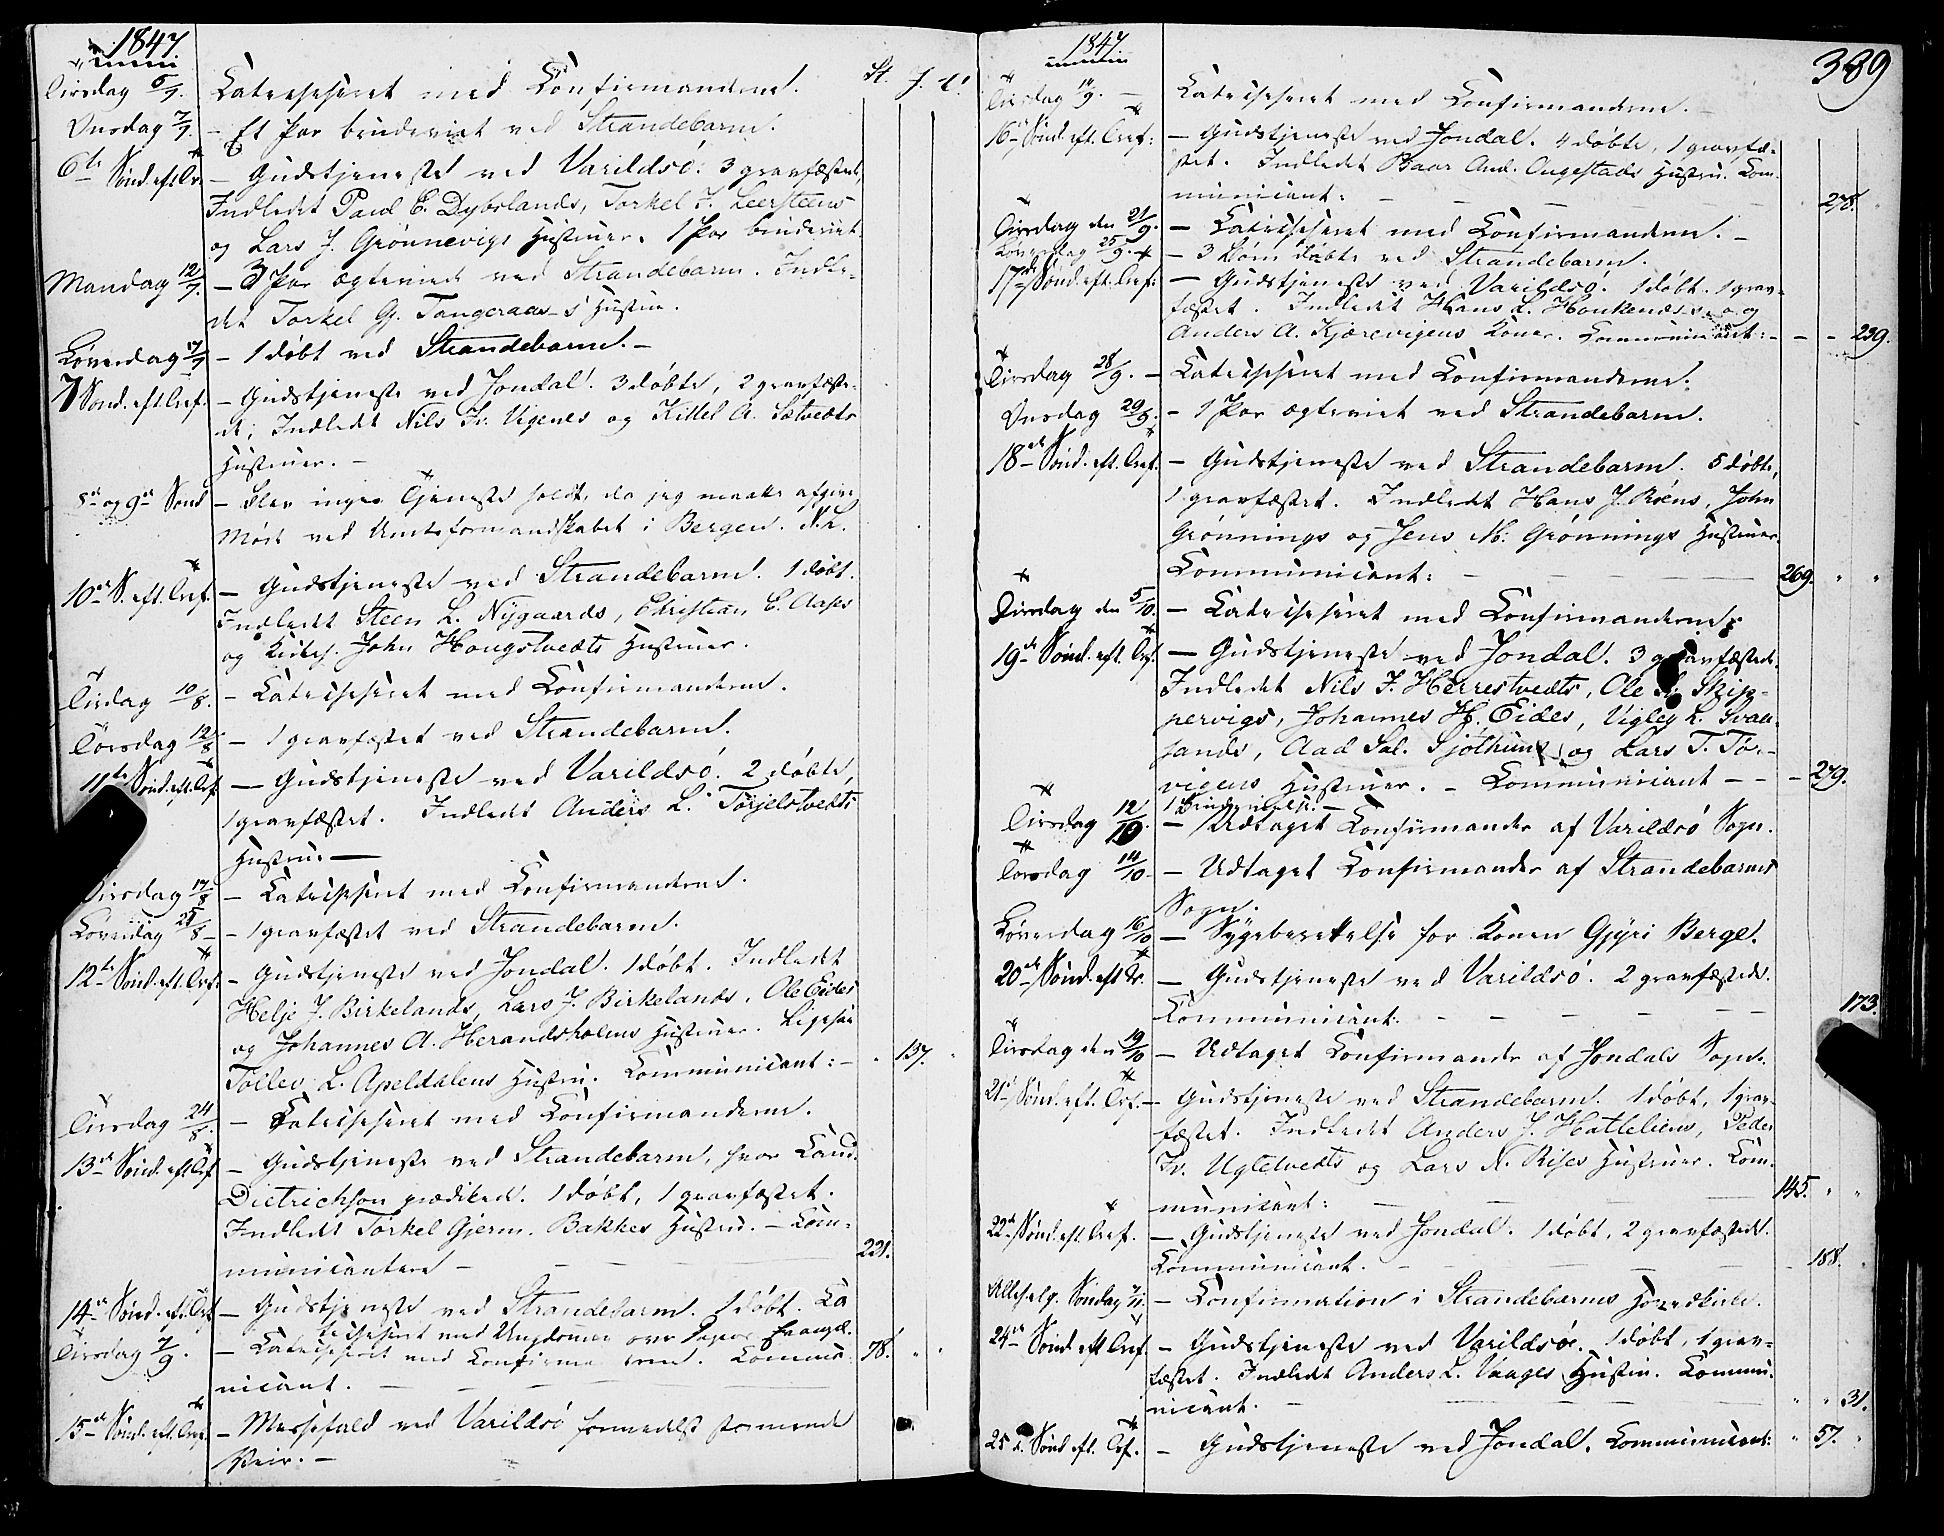 1847.
St. J. V.
Tirsdag 6/7. Catechiseret med Confirmanderne.
Onsdag 7/7. - Et Par bruderviet ved Strandebarm.
6te Sönd. eft. Tr. - Gudstjeneste ved Varildsö: 3 gravfæstede,
Indledet Paul E. Dybslands, Torkel J. Leersteens
og Lars J. Grönnevigs Hustruer. 1 Par bruderviet.
Mandag 12/7. - 3 Par ægteviet ved Strandebarm. Indle-
det Torkel G. Tangeraas-s Hustru.
Löverdag 17/7 - 1 döbt ved Strandebarm. -
7 Sönd. eft. Tref. - Gudstjeneste ved Jondal. 3 döbte, 2 gravfæste-
de; Indledt Nils Iv. Vigenes og Kittel A. Sætvedts
Hustruer. -
8de og 9de Sönd - Blev ingen Tjeneste holdt, da jeg maatte afgive
Möde ved Amtsformandskabet i Bergen.
10de S. eft. Tref. - Gudstjeneste ved Strandebarm. 1 döbt.
Indledet Steen L. Nygaards, Christian C. Aases
og Kirkes. John Hougstvedts Hustruer.
Tirsdag 10/8. - Catechiseret med Confirmanderne.
Torsdag 12/8 - 1 gravfæstet ved Strandebarm.
11te Sönd. eft. Tref. - Gudstjeneste ved Varildsö. 2 döbte,
1 gravfæstet. Indledt Anders L. Torjelstvedts
Hustru. -
Tirsdag 17/8 - Catechiseret med Confirmanderne.
Löverdag 21/8 - 1 gravfæstet ved Strandebarm.
12te Sönd. eft. Tref. - Gudstjeneste ved Jondal. 1 döbt. Indledet
Helje J. Birkelands, Lars J. Birkelands, Ole Eides
og Johannes A. Herandsholms Hustruer. Ligesaa
Tollev L. Apeldalens Hustru. Communicant: - 137.
Tirsdag 24/8. - Catechiseret med Confirmanderne.
13de Sönd. eft. Tref. - Gudstjeneste ved Strandebarm, hvor Cand.
Dietrichson prædikede. 1 döbt, 1 gravfæstet.
Indledt Torkel Gjerm. Bakkes Hustru. - Com-
municantere - 221.
14de Sönd. eft. Tref. - Gudstjeneste ved Strandebarm. 1 döbt. Ca
techiseret med Ungdommen over Dagens Evangel.
Tirsdag 7/9. - Catechiseret med Confirma erne. Commu- 78.
nicant.
15de Sönd. eft. Tref. - Messefald ved Varildsö formedelst stormende
Veir. -
1847.
389
Tirsdag 14/9. - Catechiseret med Confirmanderne.
16de Sönd. eft. Tref: - Gudstjeneste ved Jondal. 4 döbte, 1 gravfæ-
stet. Indledet Baar And. Augestads Hustru. Com-
municant: - 278.
Tirsdag den 21/9. - Catechiseret med Confirmanderne. -
Löverdag 25/9. - 3 Börn döbte ved Strandebarm.
17de Sönd. eft. Tref: - Gudstjeneste ved Varildsö. 1 döbt. 1 grav-
fæstet. Indledet Hans L. Honkenæs's og
Anders A. Kjærevigens Koner. Communicant: - - - 239.
Tirsdag 28/9. - Catechiseret med Confirmanderne.
Onsdag 29/9. - 1 Par ægteviet ved Strandebarm.
18de Sönd. eft. Tref. - Gudstjeneste ved Strandebarm. 5 döbte,
1 gravfæstet. Indledet Hans J. Röens, John
Grönnings og Jens M: Grönnings Hustruer.
Communicant: - 269.
Tirsdag den 5/10. - Catechiseret med Confirmanderne.
19de Sönd. eft. Tref. - Gudstjeneste ved Jondal. 3 gravfæstede.
Indledet Nils J. Herrestvedts, Ole Skip-
pervigs, Johannes H. Eides, Vigleg L. Svaa-
sands, Aad Sal. Sjöthuns og Lars T. Tor-
vigens Hustruer. - Communicant - - - 279.
1 Brudevielse. -
Tirsdag 12/10. - Udtaget Confirmander af Varildsö Sogn.
Torsdag 14/10. - Udtaget Confirmander af Strandebarms
Sogn.
Löverdag 16/10 - Sygeberettelse for Konen Gjyri Berge.
20de Sönd. eft Tr. - Gudstjeneste ved Varildsö. 2 gravfæstede.
Communicant: - 173.
Tirsdag den 19/10 - Udtaget Confirmander af Jondals Sogn.
21de Sönd. eft. Tref. - Gudstjeneste ved Strandebarm. 1 döbt, 1 grav-
fæstet. Indledet Anders J. Hatleliens, Peder
Iv. Ugletvedts og Lars N. Rises Hustruer. Com-
municant: - 145.
22de Sönd. eft. Tref. - Gudstjeneste ved Jondal. 1 döbt, 2 gravfæstede.
Communicant. - 188.
Allehelg. Söndag 7/11. - Confirmation i Strandebarms Hovedkirke.
24de Sönd eft Tref - Gudstjeneste ved Varildsöe. 1 döbt, 1 grav-
fæstet. Indledt Anders L. Vaages Hustru. Commu-
nicant. - 31.
25de Sönd eft. Tref. - Gudstjeneste ved Jondal. Communicant: 57.